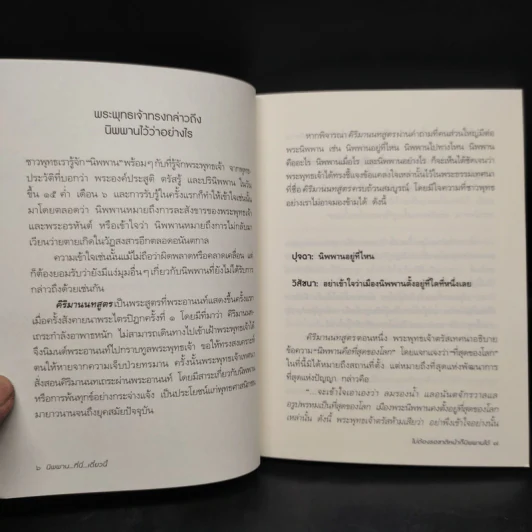 พระพุทธเจ้าทรงกล่าวถึง
นิพพานไว้ว่าอย่างไร
ชาวพุทธเรารู้จัก “นิพพาน” พร้อมๆ กับที่รู้จักพระพุทธเจ้า จากพุทธ-
ประวัติที่บอกว่า พระองค์ประสูติ ตรัสรู้ และปรินิพพาน ในวัน
ขึ้น ๑๕ ค่ำ เดือน ๖ และการรับรู้ในครั้งแรกก็ทำให้เข้าใจเช่นนั้น
มาโดยตลอดว่า นิพพานหมายถึงการละสังขารของพระพุทธเจ้า
และพระอรหันต์ หรือเข้าใจว่า นิพพานหมายถึงการไม่กลับมา
เวียนว่ายตายเกิดในวัฏสงสารอีกตลอดอนันตกาล
ความเข้าใจเช่นนั้นแม้ไม่ถือว่าผิดพลาดหรือคลาดเคลื่อน แต่
ก็ต้องยอมรับว่ายังมีแง่มุมอื่นๆ เกี่ยวกับนิพพานที่ยังไม่ได้รับการ
กล่าวถึงด้วยเช่นกัน
คิริมานนทสูตร เป็นพระสูตรที่พระอานนท์แสดงขึ้นครั้งแรก
เมื่อครั้งสังคายนาพระไตรปิฎกครั้งที่ ๑ โดยมีที่มาว่า คิริมานนท-
เถระกำลังอาพาธหนัก ไม่สามารถเดินทางไปเข้าเฝ้าพระพุทธเจ้าได้
จึงนิมนต์พระอานนท์ไปกราบทูลพระพุทธเจ้า ขอให้ทรงสงเคราะห์
ตนให้หายจากความเจ็บป่วยทรมาน ครั้งนั้นพระพุทธเจ้าเทศนา
สั่งสอนคิริมานนทเถระผ่านพระอานนท์ โดยมีสาระเกี่ยวกับนิพพาน
หรือการพ้นทุกข์อย่างกระจ่างแจ้ง เป็นประโยชน์แก่พุทธศาสนิกชน
มายาวนานจนถึงยุคสมัยปัจจุบัน
๖ นิพพาน...ที่นี่...เดี๋ยวนี้
หากพิจารณา คิริมานนทสูตร ผ่านคำถามที่คนส่วนใหญ่มีต่อ
พระนิพพาน เช่น นิพพานอยู่ที่ไหน นิพพานไปทางไหน นิพพาน
คืออะไร นิพพานเมื่อไร และนิพพานอย่างไร ก็จะเห็นได้ชัดเจนว่า
พระพุทธเจ้าได้ทรงชี้แจงข้อแคลงใจเหล่านั้นไว้ในพระธรรมเทศนา
ที่ชื่อ คิริมานนทสูตร ครบถ้วนสมบูรณ์ โดยมีใจความที่ชาวพุทธ
อย่างเราไม่อาจมองข้ามได้ ดังนี้
ปุจฉา: นิพพานอยู่ที่ไหน
วิสัชนา: อย่าเข้าใจว่าเมืองนิพพานตั้งอยู่ที่ใดที่หนึ่งเลย
คิริมานนทสูตร ตอนหนึ่ง พระพุทธเจ้าตรัสเทศนาอธิบาย
ข้อความ “นิพพานคือที่สุดของโลก” โดยแจกแจงว่า “ที่สุดของโลก”
ในที่นี้มิได้หมายถึงสถานที่ตั้ง แต่หมายถึงที่สุดแห่งพัฒนาการ
ที่สุดแห่งปัญญา กล่าวคือ
“...จะเข้าใจเอาเองว่า ลมรองน้ำ แลอนันตจักรวาลแล
อรูปพรหมเป็นที่สุดของโลก เมืองพระนิพพานคงตั้งอยู่ที่สุดของโลก
เหล่านั้น ดังนี้ พระพุทธเจ้าตรัสห้ามเสียว่า อย่าพึงเข้าใจอย่างนั้น